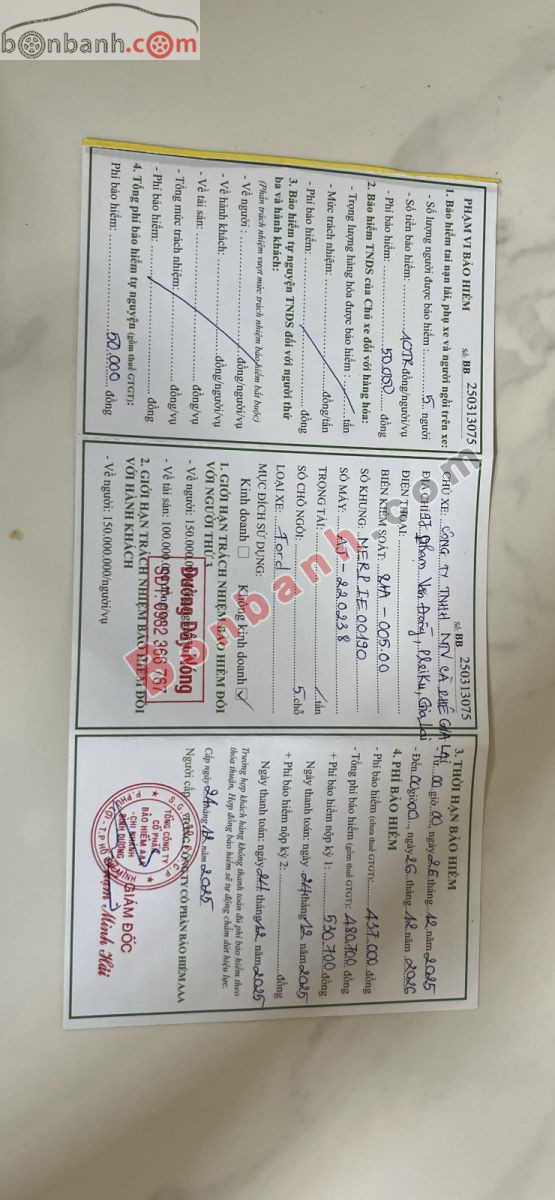 bonbanh.com
PHẠM VI BẢO HIỂM
Số: BB 250313075
1. Bảo hiểm tai nạn lái, phụ xe và người ngồi trên xe:
- Số lượng người được bảo hiểm : 5 người
- Số tiền bảo hiểm: 10TR đồng/người/vụ
- Phí bảo hiểm: 50.000 đồng
2. Bảo hiểm TNDS của Chủ xe đối với hàng hóa:
- Trọng lượng hàng hóa được bảo hiểm : tấn
- Mức trách nhiệm: đồng/tấn
- Phí bảo hiểm: đồng
3. Bảo hiểm tự nguyện TNDS đối với người thứ
ba và hành khách:
(Phần trách nhiệm vượt mức trách nhiệm bảo hiểm bắt buộc)
- Về người : đồng/người/vụ
- Về hành khách: đồng/người/vụ
- Về tài sản: đồng/vụ
- Tổng mức trách nhiệm: đồng/vụ
- Phí bảo hiểm: đồng
4. Tổng phí bảo hiểm tự nguyện (gồm thuế GTGT):
Phí bảo hiểm: 50.000 đồng
Số: BB 250313075
CHỦ XE: CÔNG TY TNHH MTV CÀ PHÊ GIA LAI
ĐỊA CHỈ: Phạm Văn Đồng, Pleiku, Gia Lai
ĐIỆN THOẠI:
BIỂN KIỂM SOÁT: 81A - 005.00
SỐ KHUNG: MERPIE00190
SỐ MÁY: AJ - 220238
TRỌNG TẢI: tấn
SỐ CHỖ NGỒI: 5 chỗ
LOẠI XE: Ford
MỤC ĐÍCH SỬ DỤNG:
Kinh doanh Không kinh doanh
1. GIỚI HẠN TRÁCH NHIỆM BẢO HIỂM ĐỐI
VỚI NGƯỜI THỨ 3
- Về người: 150.000.000
- Về tài sản: 100.000.
Đường Dây Nóng
SĐT: 0982 366 787
2. GIỚI HẠN TRÁCH NHIỆM BẢO HIỂM ĐỐI
VỚI HÀNH KHÁCH
- Về người: 150.000.000đồng/người/vụ
3. THỜI HẠN BẢO HIỂM
- Từ 00 giờ 00, ngày 26 tháng 12 năm 2025
- Đến 00 giờ 00, ngày 26 tháng 12 năm 2026
4. PHÍ BẢO HIỂM
- Phí bảo hiểm (chưa thuế GTGT): 437.000 đồng
- Tổng phí bảo hiểm (gồm thuế GTGT): 480.700 đồng
+ Phí bảo hiểm nộp kỳ 1: 530.700 đồng
Ngày thanh toán: ngày 24 tháng 12 năm 2025
+ Phí bảo hiểm nộp kỳ 2: đồng
Ngày thanh toán: ngày 24 tháng 12 năm 2025
Trường hợp khách hàng không thanh toán đủ phí bảo hiểm theo
thỏa thuận, Hợp đồng bảo hiểm sẽ tự động chấm dứt hiệu lực.
Cấp ngày 24 tháng 12 năm 2025
Người cấp TỔNG CÔNG TY CỔ PHẦN BẢO HIỂM AAA
TỔNG CÔNG TY
CỔ PHẦN
BẢO HIỂM AAA
- CHI NHÁNH
BÌNH DƯƠNG
GIÁM ĐỐC
Phạm Minh Hải
Bonbanh.com